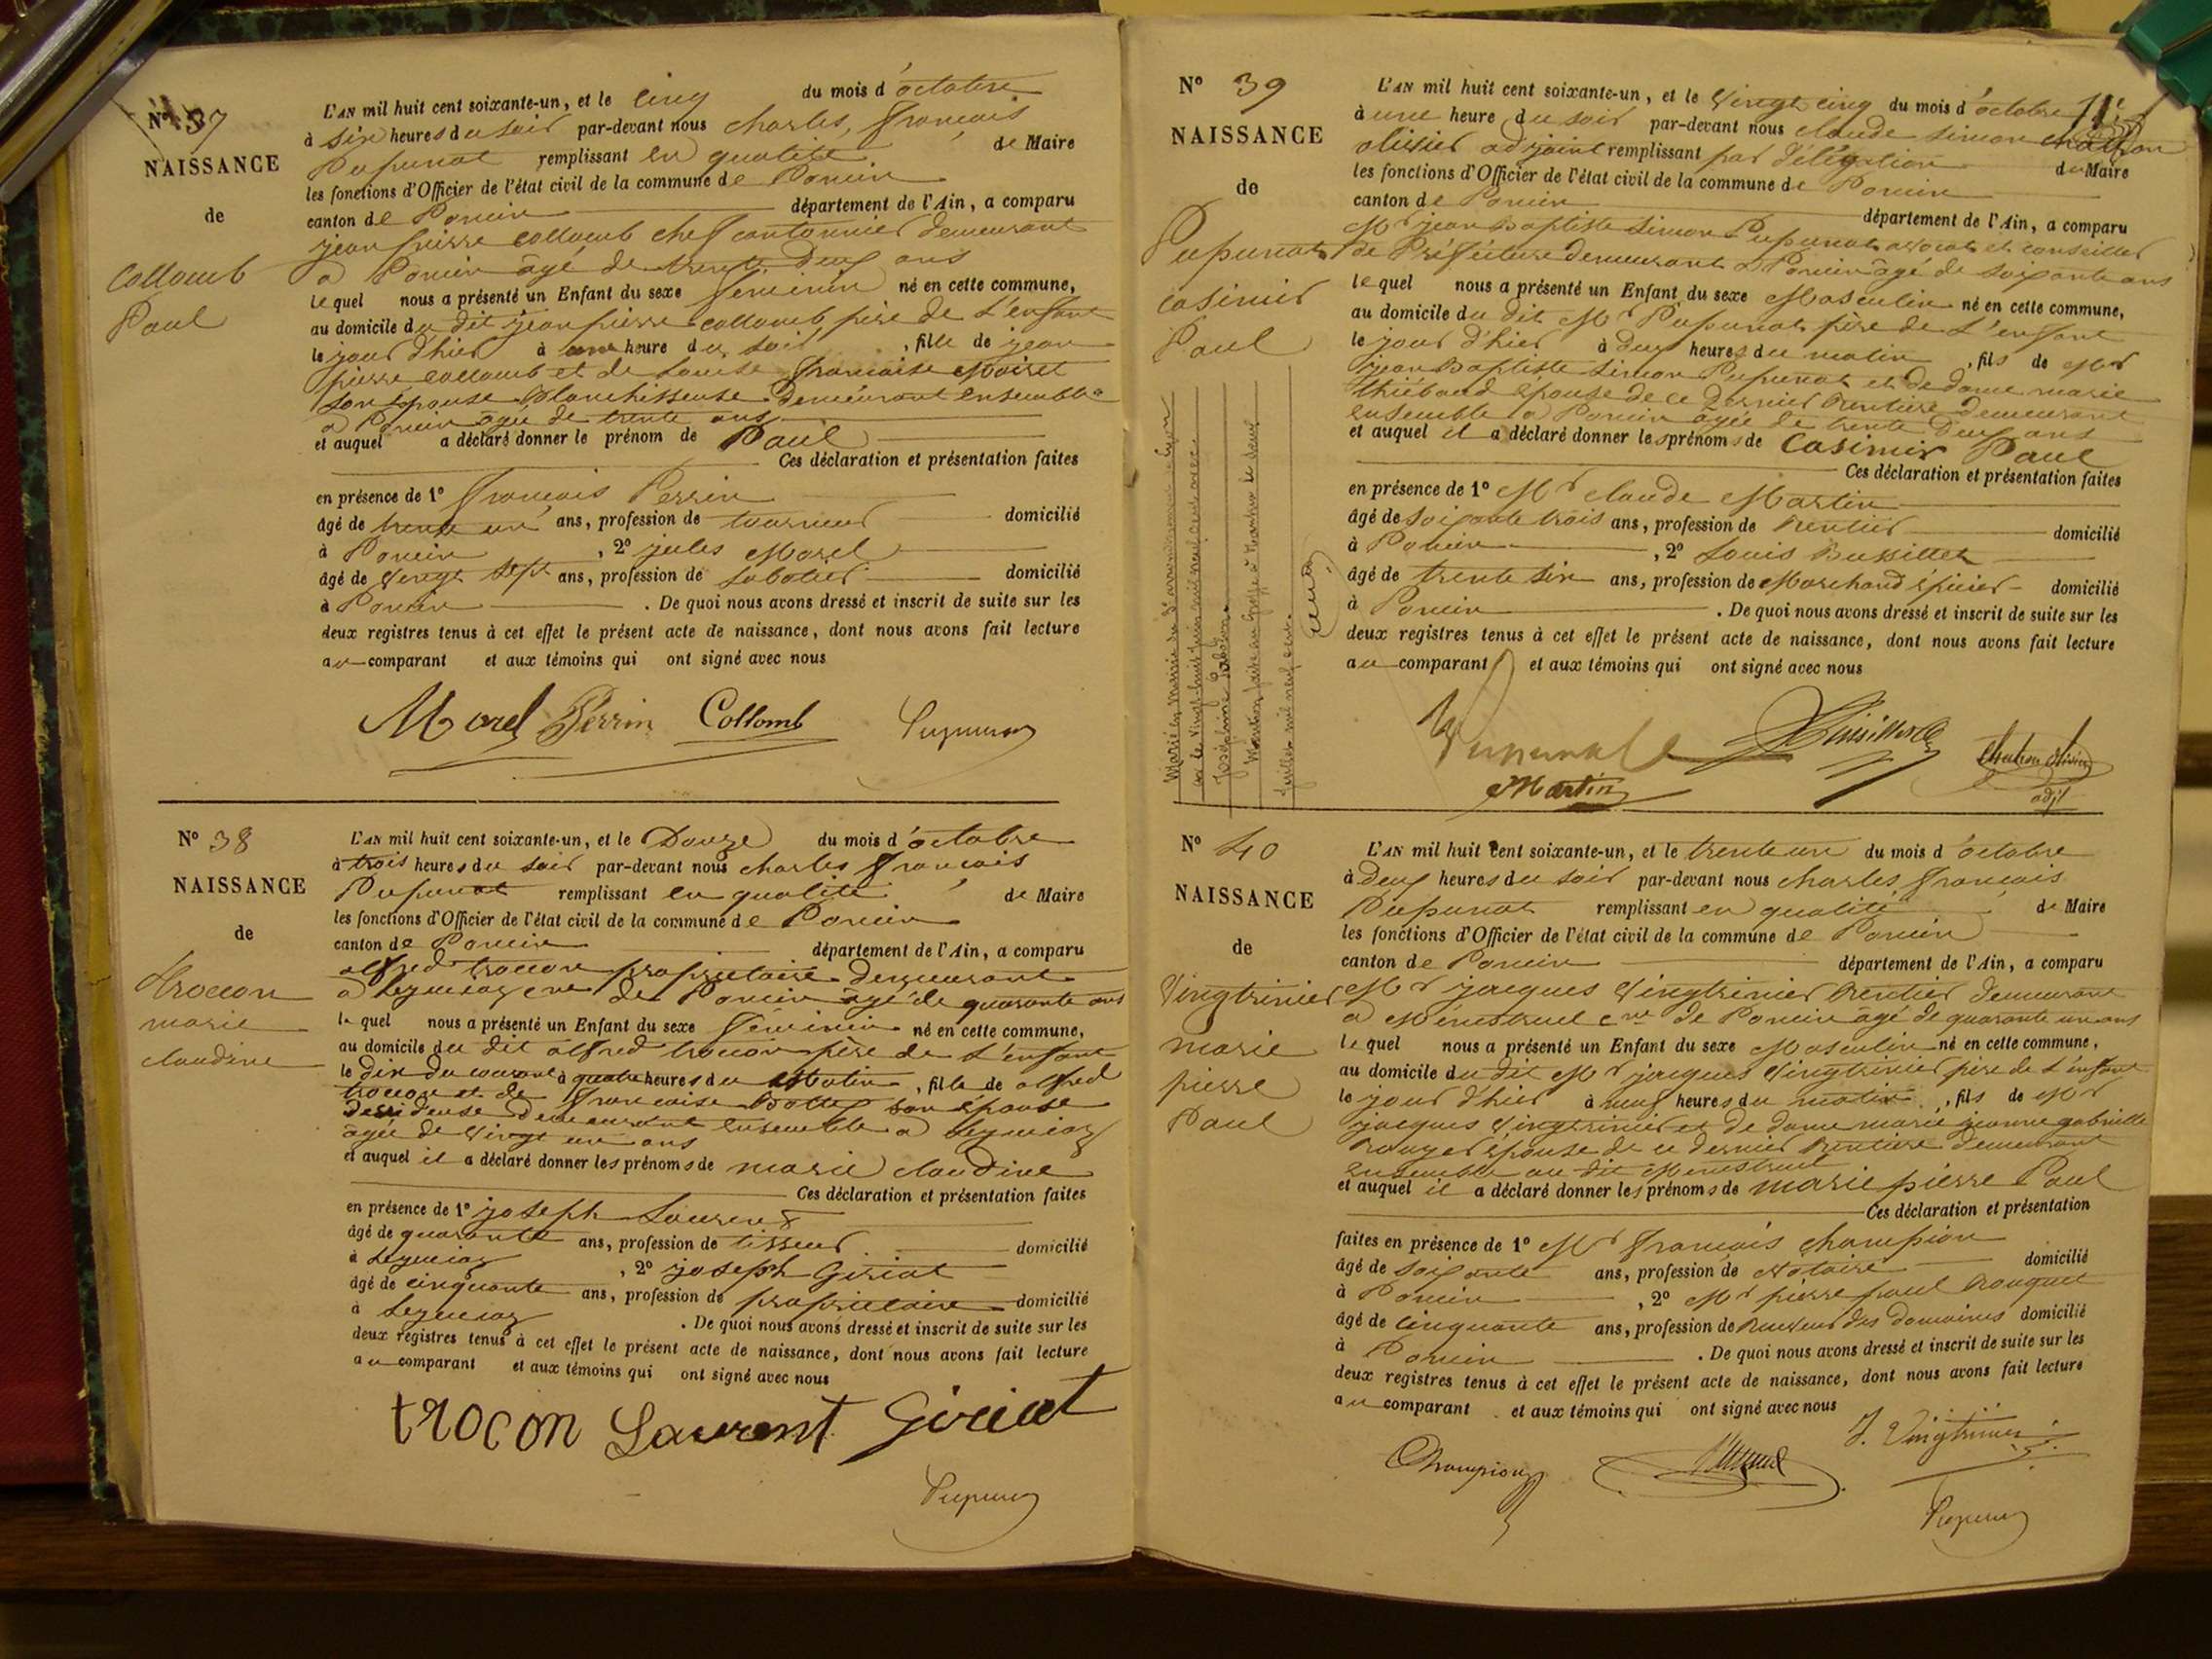 Nº 37
NAISSANCE
de
Collomb
Paul
L'AN mil huit cent soixante-un, et le cinq du mois d'octobre
à six heures du soir par-devant nous charles, françois
Pupunat remplissant en qualité de Maire
les fonctions d'Officier de l'état civil de la commune de Poncin
canton de Poncin département de l'Ain, a comparu
jean pierre collomb chef cantonnier demeurant
a Poncin âgé de trente deux ans
lequel nous a présenté un Enfant du sexe féminin né en cette commune,
au domicile du dit jean pierre collomb père de l'enfant
le jour d'hier à une heure du soir, fille de jean
pierre collomb et de Louise françoise Moiret
son épouse blanchisseuse demeurant ensemble
a Poncin âgée de trente ans
et auquel a déclaré donner le prénom de Paul
Ces déclaration et présentation faites
en présence de 1º françois Perrin
âgé de trente un ans, profession de tourneur domicilié
à Poncin, 2º jules Morel
âgé de vingt sept ans, profession de sabotier domicilié
à Poncin. De quoi nous avons dressé et inscrit de suite sur les
deux registres tenus à cet effet le présent acte de naissance, dont nous avons fait lecture
au comparant et aux témoins qui ont signé avec nous
Morel Perrin Collomb Pupunat
Nº 38
NAISSANCE
de
trocon
marie
claudine
L'AN mil huit cent soixante-un, et le Douze du mois d'octobre
à trois heures du soir par-devant nous charles françois
Pupunat remplissant en qualité de Maire
les fonctions d'Officier de l'état civil de la commune de Poncin
canton de Poncin département de l'Ain, a comparu
alfred trocon propriétaire demeurant
a Leymiaz cne de Poncin âgé de quarante ans
lequel nous a présenté un Enfant du sexe féminin né en cette commune,
au domicile du dit alfred trocon père de l'enfant
le dix du courant à quatre heures du Matin, fille de alfred
trocon et de françoise son épouse
demeurant ensemble a Leymiaz
âgée de vingt un ans
et auquel il a déclaré donner les prénoms de marie claudine
Ces déclaration et présentation faites
en présence de 1º joseph Laurent
âgé de quarante ans, profession de tisseur domicilié
à Leymiaz, 2º joseph Giriat
âgé de cinquante ans, profession de propriétaire domicilié
à Leymiaz. De quoi nous avons dressé et inscrit de suite sur les
deux registres tenus à cet effet le présent acte de naissance, dont nous avons fait lecture
au comparant et aux témoins qui ont signé avec nous
trocon Laurent Giriat
Pupunat
Nº 39
NAISSANCE
de
Pupunat
casimir
Paul
L'AN mil huit cent soixante-un, et le vingt cinq du mois d'octobre
à une heure du soir par-devant nous claude simon chatron
olivier adjoint remplissant par délégation du Maire
les fonctions d'Officier de l'état civil de la commune de Poncin
canton de Poncin département de l'Ain, a comparu
Mr jean Baptiste simon Pupunat avocat et conseiller
de Préfecture demeurant a Poncin âgé de soixante ans
lequel nous a présenté un Enfant du sexe Masculin né en cette commune,
au domicile du dit Mr Pupunat père de l'enfant
le jour d'hier à deux heures du matin, fils de Mr
jean Baptiste simon Pupunat et de dame marie
thiébaud épouse de ce dernier Rentière demeurant
ensemble a Poncin âgée de trente deux ans
et auquel il a déclaré donner les prénoms de Casimir Paul
Ces déclaration et présentation faites
en présence de 1º Mr claude Martin
âgé de soixante trois ans, profession de Rentier domicilié
à Poncin, 2º Louis Bussillet
âgé de trente six ans, profession de Marchand épicier domicilié
à Poncin. De quoi nous avons dressé et inscrit de suite sur les
deux registres tenus à cet effet le présent acte de naissance, dont nous avons fait lecture
au comparant et aux témoins qui ont signé avec nous
Pupunat Bussillet Chatron olivier
Martin adjt
Nº 40
NAISSANCE
de
Vingtrinier
marie
pierre
Paul
L'AN mil huit cent soixante-un, et le trente un du mois d'octobre
à deux heures du soir par-devant nous charles, françois
Pupunat remplissant en qualité de Maire
les fonctions d'Officier de l'état civil de la commune de Poncin
canton de Poncin département de l'Ain, a comparu
Mr jacques Vingtrinier Rentier demeurant
a Ménestruel cne de Poncin âgé de quarante un ans
lequel nous a présenté un Enfant du sexe Masculin né en cette commune,
au domicile du dit Mr jacques Vingtrinier père de l'enfant
le jour d'hier à neuf heures du matin, fils de Mr
jacques Vingtrinier et de dame marie jeanne gabrielle
Rouyer épouse de ce dernier Rentière demeurant
ensemble au dit Menestruel
et auquel il a déclaré donner les prénoms de marie pierre Paul
Ces déclaration et présentation
faites en présence de 1º Mr françois champion
âgé de soixante ans, profession de Notaire domicilié
à Poncin, 2º Mr pierre paul
âgé de cinquante ans, profession de Receveur des domaines domicilié
à Poncin. De quoi nous avons dressé et inscrit de suite sur les
deux registres tenus à cet effet le présent acte de naissance, dont nous avons fait lecture
au comparant et aux témoins qui ont signé avec nous
Champion J. Vingtrinier
Pupunat